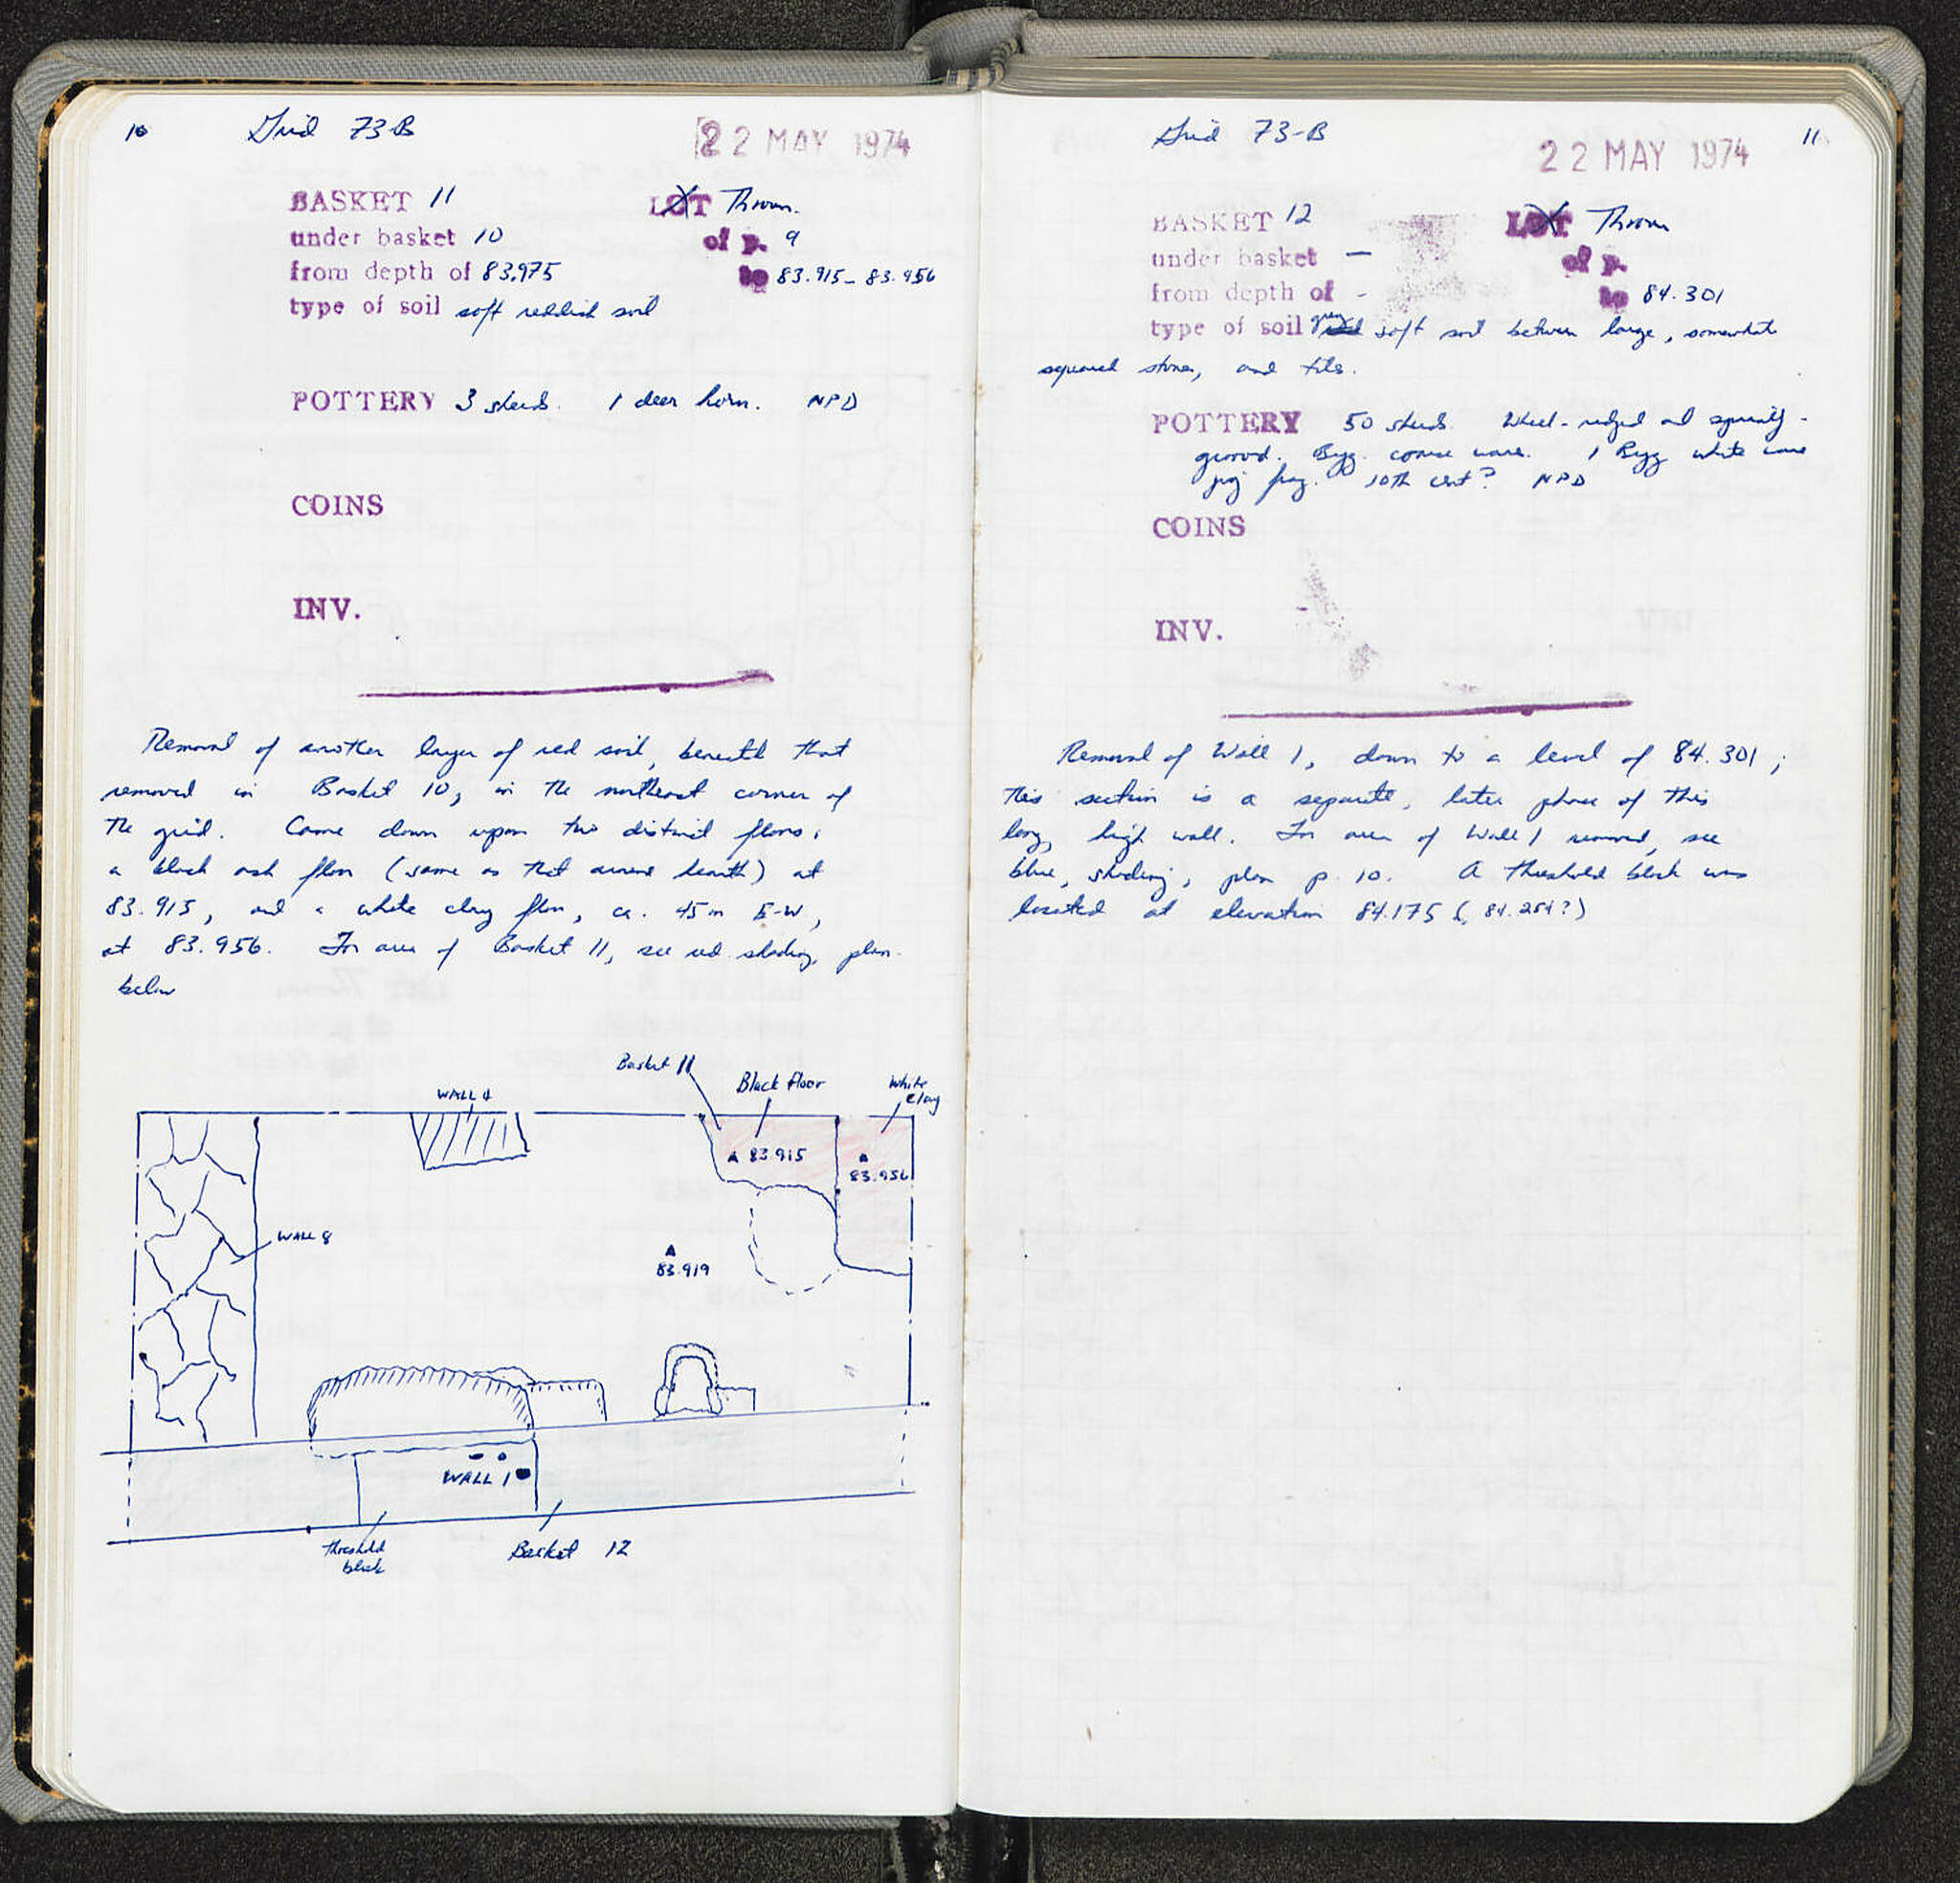 10 Grid 73-B 22 MAY 1974
BASKET 11 LOT Thrown.
under basket 10 of p. 9
from depth of 83.975 to 83.915-83.956
type of soil soft reddish soil
POTTERY 3 sherds. 1 deer horn. NPD
COINS
INV.
Removal of another layer of red soil, beneath that
removed in Basket 10, in the northeast corner of
the grid. Came down upon two distinct floors:
a black ash floor (same as that around hearth) at
83.915, and a white clay floor, ca. .45m E-W,
at 83.956. For area of Basket 11, see red shading, plan
below
Basket 11
Black floor
White
Clay
WALL 4
83.915
83.956
WALL 8
83.919
WALL 1
Threshold
block
Basket 12
Grid 73-B 22 MAY 1974 11
BASKET 12 LOT Thrown
under basket — of p.
from depth of - to 84.301
type of soil grey soft soil between large, somewhat
squared stones, and tile.
POTTERY 50 sherds. Wheel-ridged and spirally-
grooved. Byz. coarse ware. 1 Byz white ware
frag. 10th cent? NPD
COINS
INV.
Removal of Wall 1, down to a level of 84.301;
this section is a separate, later phase of this
long, high wall. For area of Wall 1 removed, see
blue, shading, plan p. 10. A threshold block was
located at elevation 84.175 (84.254?)